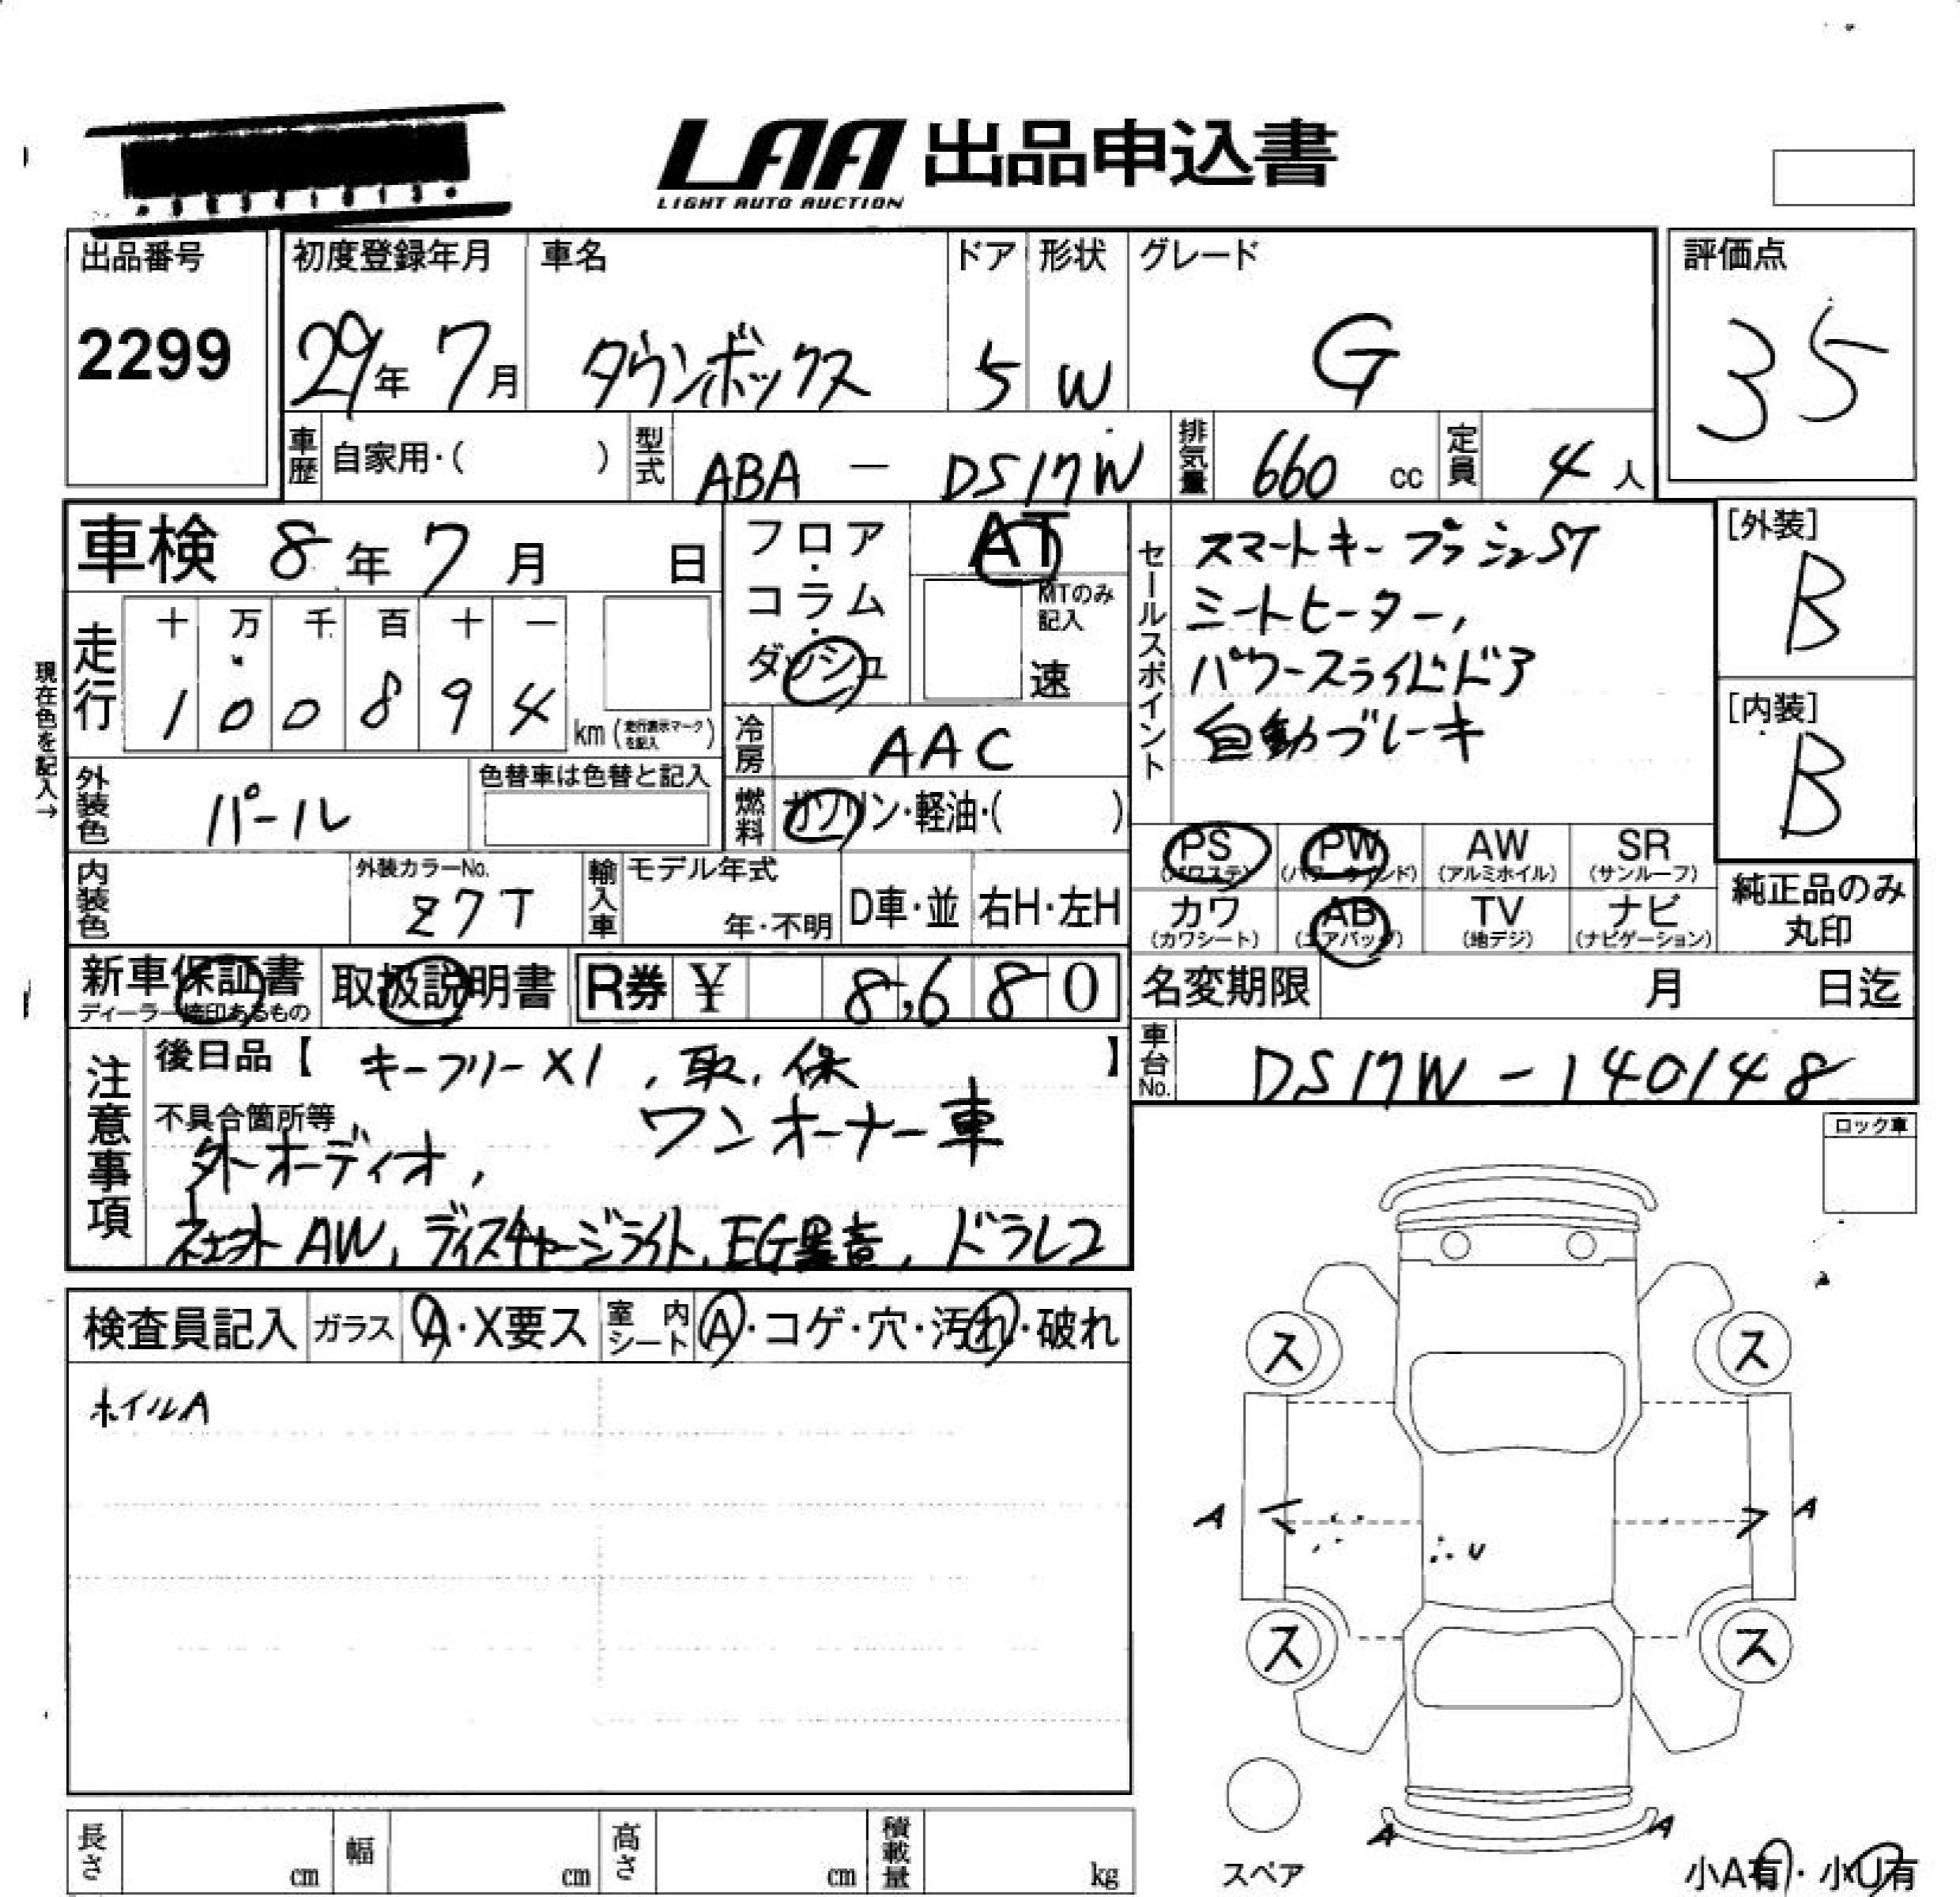 LAA 出品申込書
LIGHT AUTO AUCTION
出品番号
2299
初度登録年月
29年 7月
車名
タウンボックス
ドア
5
形状
W
グレード
G
評価点
35
車歴 自家用・( )
型式 ABA - DS17W
排気量 660 cc
定員 4 人
車検 8年 7月 日
フロア・コラム・ダッシュ
AT
MTのみ記入
速
セールスポイント
スマートキー プッシュST
シートヒーター,
パワースライドドア
自動ブレーキ
[外装]
B
[内装]
B
現在色を記入→
走行
十 万 千 百 十 一
1 0 0 8 9 4 km (走行表示マークを記入)
冷房 AAC
外装色 パール
色替車は色替と記入
燃料 ガソリン・軽油・( )
内装色
外装カラーNo.
Z7T
輸入車
モデル年式
年・不明
D車・並
右H・左H
PS (パワステ)
PW (パワーウインド)
AW (アルミホイル)
SR (サンルーフ)
カワ (カワシート)
AB (エアバッグ)
TV (地デジ)
ナビ (ナビゲーション)
純正品のみ丸印
新車保証書
ディーラー捺印あるもの
取扱説明書
R券 ¥ 8,680
名変期限 月 日迄
注意事項
後日品【 キーフリー×1, 取, 保 】
不具合箇所等
ワンオーナー車
外オーディオ,
AW, ディスチャージライト, EG異音, ドラレコ
車台No. DS17W-140148
ロック車
検査員記入
ガラス A・X要ス
室内シート A・コゲ・穴・汚れ・破れ
ホイルA
ス ス
A A
U
ス ス
A A
スペア
小A有・小U有
長さ cm
幅 cm
高さ cm
積載量 kg